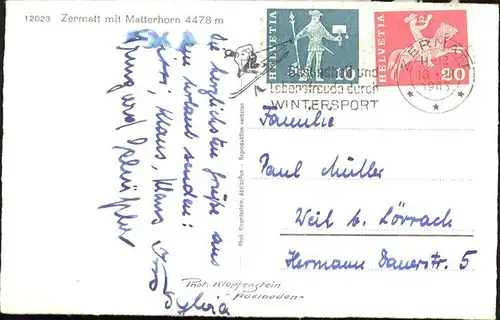 12023 Zermatt mit Matterhorn 4478 m
HELVETIA
10
HELVETIA
20
ZERMATT
Gesundheit und
Lebensfreude durch
WINTERSPORT
die herzlichsten Grüße aus
dem Urlaub senden:
Klaus, Klaus
Sylvia
Irmgard
Phot. Klopfenstein, Adelboden - Reproduktion verboten
Phot. Klopfenstein
- Adelboden -
Familie
Paul Müller
Weil b. Lörrach
Hermann Dauerstr. 5